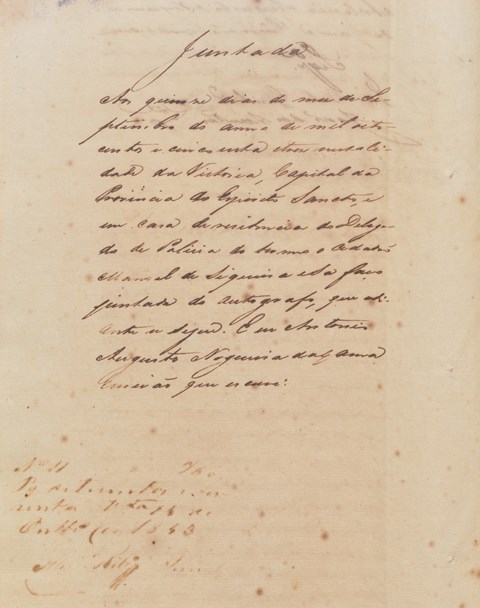 Juntada
Aos quinze dias do mez de Se-
ptembro do anno de mil oito
centos e cincoenta e tres nesta Ci-
dade da Victoria, Capital da
Provincia do Espirito Sancto, e
em casa de residencia do Delega-
do de Policia do termo o Cidadão
Manoel de Siqueira e Sá faço
juntada do autografo, que adi-
ante se segue. E eu Antonio
Augusto Nogueira da Gama
Escrivão que escrevi.
Nº 11
Pg
de 1853